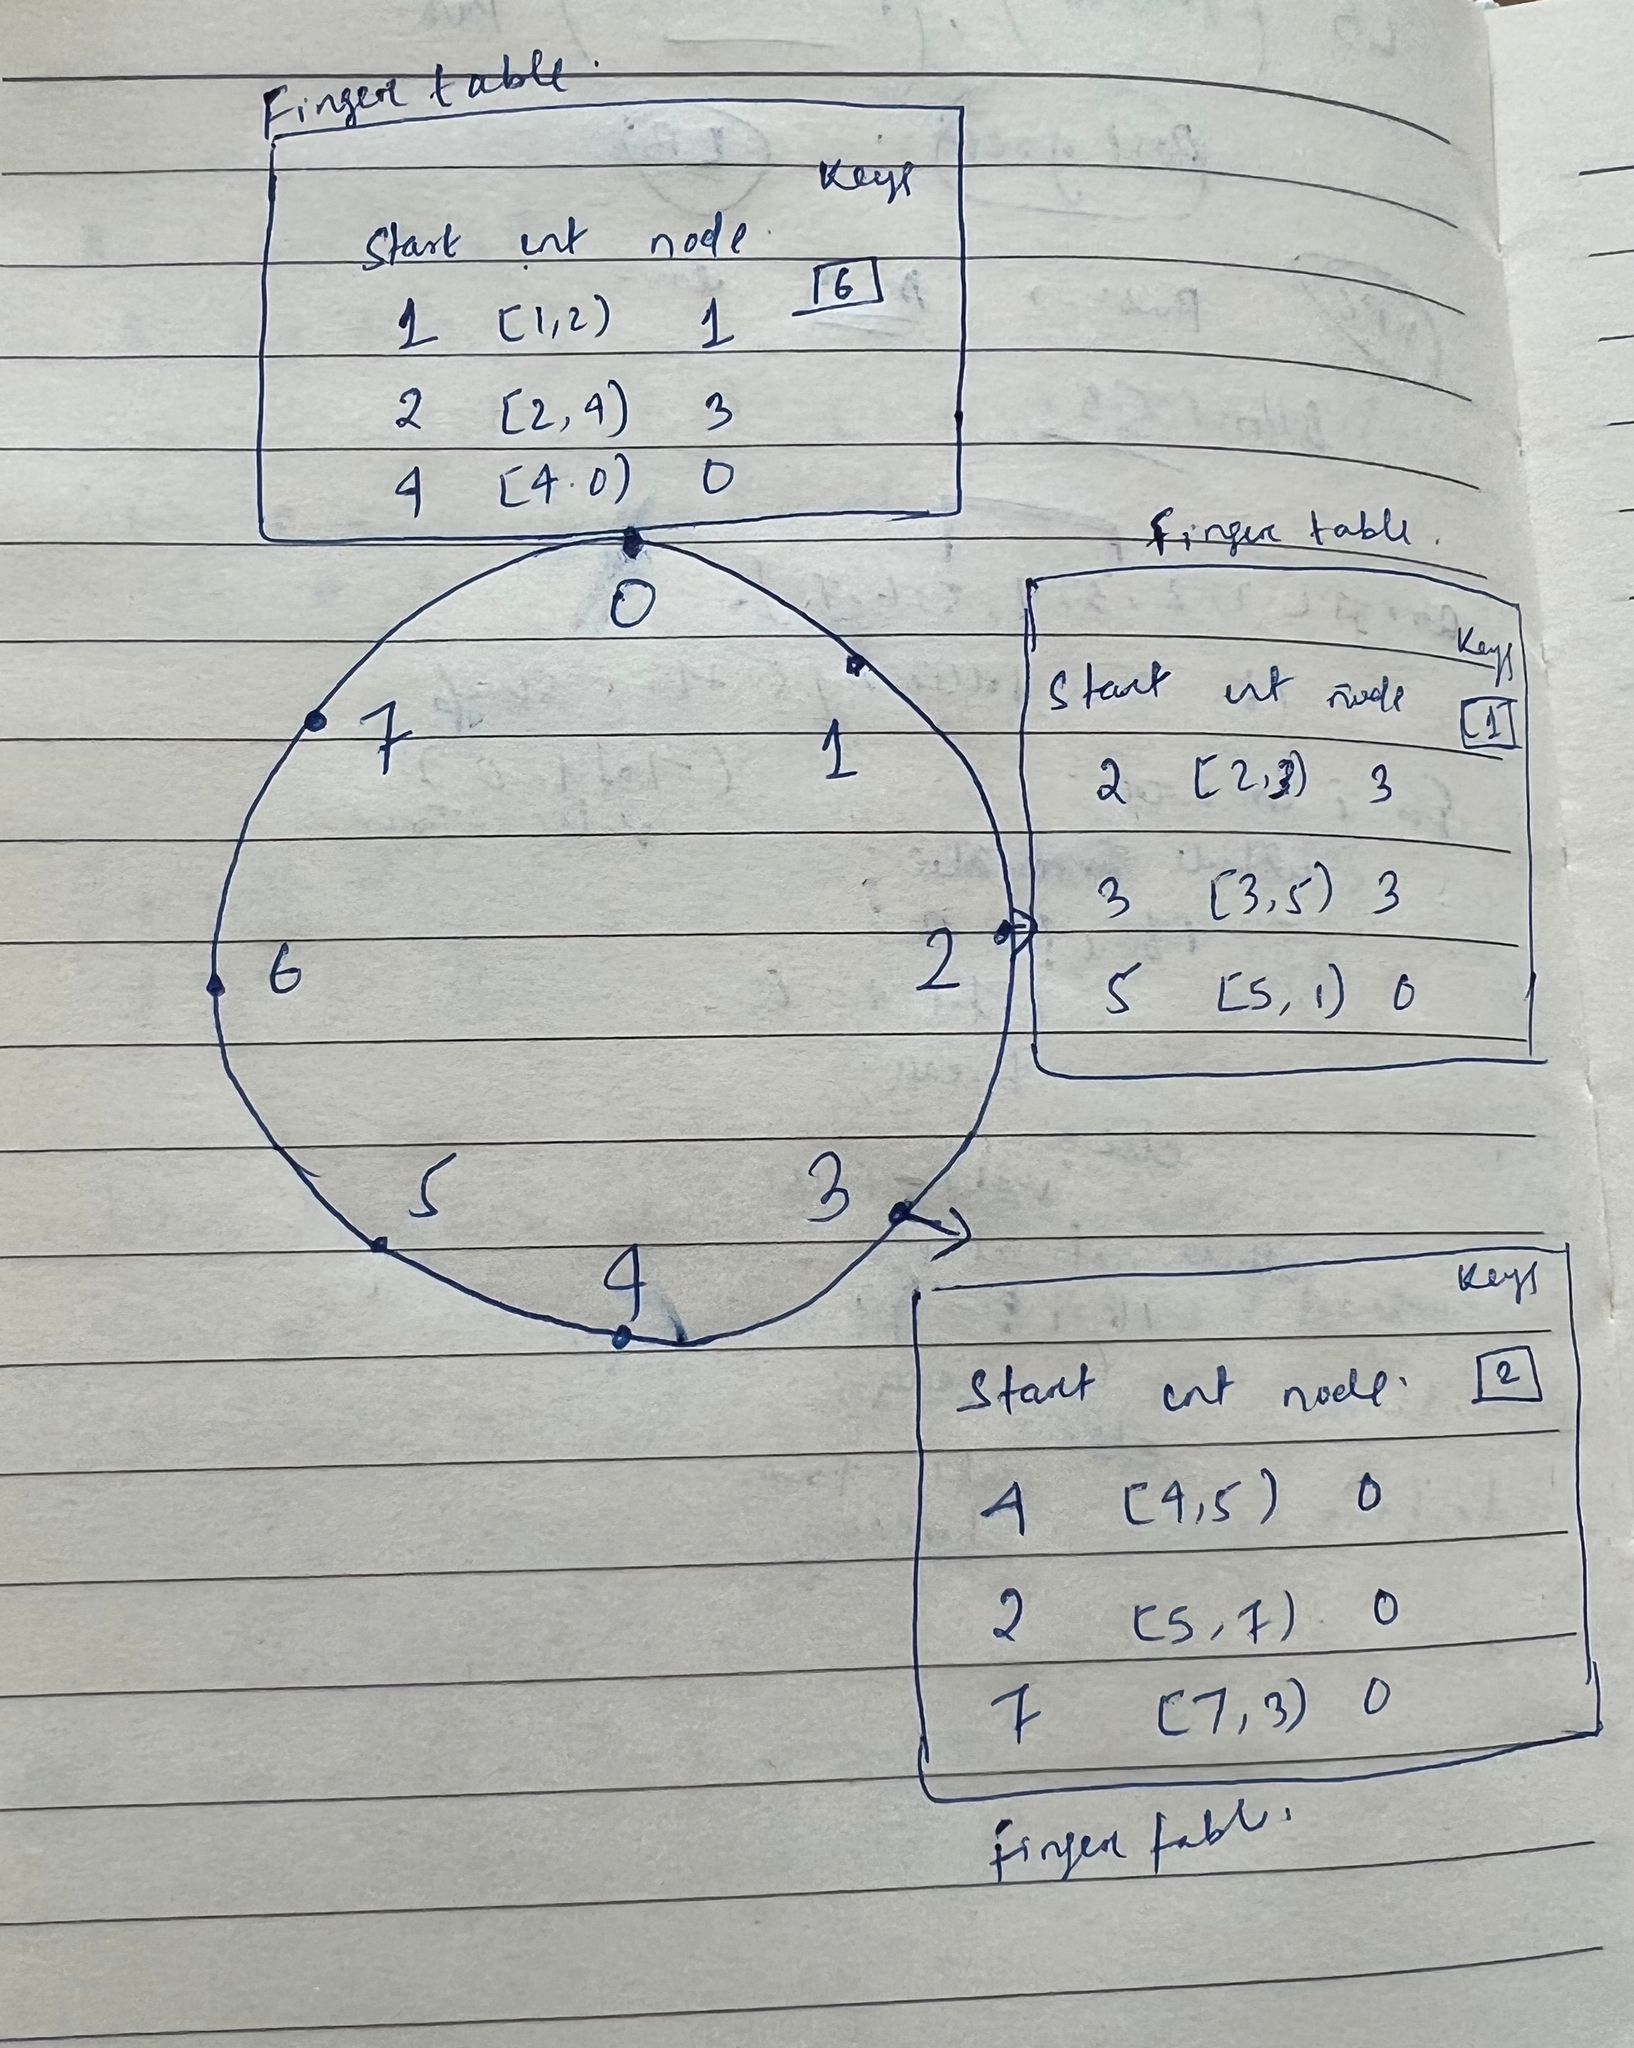 Finger table.
Keys
Start int node.
[6]
1 [1,2) 1
2 [2,4) 3
4 [4.0) 0
0
1
2
3
4
5
6
7
Finger table.
Keys
Start int node
[1]
2 [2,3) 3
3 [3,5) 3
5 [5,1) 0
Keys
Start int node. 2
4 [4,5) 0
2 [5,7) 0
7 [7,3) 0
Finger table.